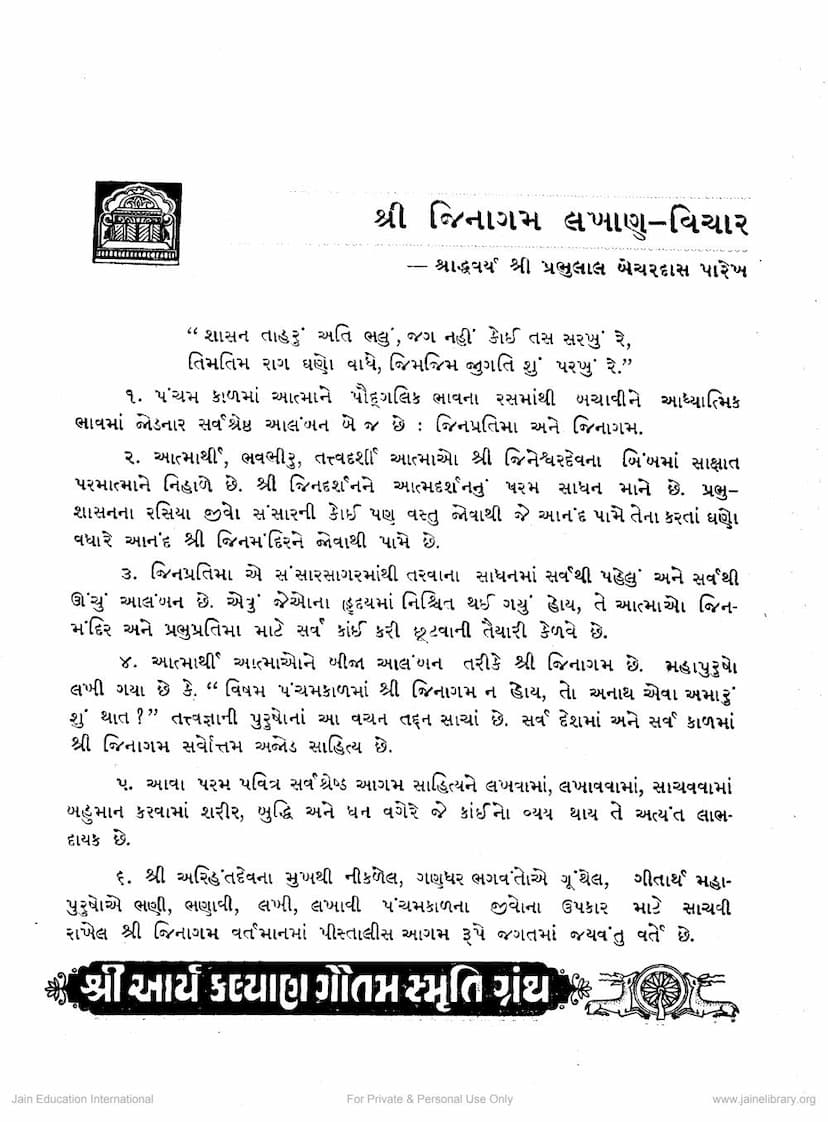 શ્રી જિનાગમ લખાણ–વિચાર
— શ્રાદ્ધવર્ય શ્રી પ્રભુલાલ બેચરદાસ પારેખ
“ શાસન તાહરું અતિ ભલું, જગ નહીં કોઈ તસ સરખું રે,
તિમતિમ રાગ ઘણો વાધે, જિમજિમ જુગતિ શું પરખું રે.”
૧. પંચમ કાળમાં આત્માને પૌદ્ગલિક ભાવના રસમાંથી બચાવીને આધ્યાત્મિક
ભાવમાં જોડનાર સર્વશ્રેષ્ઠ આલંબન બે જ છે : જિનપ્રતિમા અને જિનાગમ.
૨. આત્માર્થી, ભવભીરુ, તત્ત્વદર્શી આત્માઓ શ્રી જિનેશ્વરદેવના બિંબમાં સાક્ષાત
પરમાત્માને નિહાળે છે. શ્રી જિનદર્શનને આત્મદર્શનનું પરમ સાધન માને છે. પ્રભુ–
શાસનના રસિયા જીવો સંસારની કોઈ પણ વસ્તુ જોવાથી જે આનંદ પામે તેના કરતાં ઘણો
વધારે આનંદ શ્રી જિનમંદિરને જોવાથી પામે છે.
૩. જિનપ્રતિમા એ સંસારસાગરમાંથી તરવાના સાધનમાં સર્વથી પહેલું અને સર્વથી
ઊંચું આલંબન છે. એવું જેઓના હૃદયમાં નિશ્ચિત થઈ ગયું હોય, તે આત્માઓ જિન-
મંદિર અને પ્રભુપ્રતિમા માટે સર્વ કાંઈ કરી છૂટવાની તૈયારી કેળવે છે.
૪. આત્માર્થી આત્માઓને બીજા આલંબન તરીકે શ્રી જિનાગમ છે. મહાપુરુષો
લખી ગયા છે કે, “ વિષમ પંચમકાળમાં શ્રી જિનાગમ ન હોય, તો અનાથ એવા અમારું
શું થાત ?” તત્ત્વજ્ઞાની પુરુષોનાં આ વચન તદ્દન સાચાં છે. સર્વ દેશમાં અને સર્વ કાળમાં
શ્રી જિનાગમ સર્વોત્તમ અજોડ સાહિત્ય છે.
૫. આવા પરમ પવિત્ર સર્વશ્રેષ્ઠ આગમ સાહિત્યને લખવામાં, લખાવવામાં, સાચવવામાં
બહુમાન કરવામાં શરીર, બુદ્ધિ અને ધન વગેરે જે કાંઈનો વ્યય થાય તે અત્યંત લાભ-
દાયક છે.
૬. શ્રી અરિહંતદેવના મુખથી નીકળેલ, ગણધર ભગવંતોએ ગૂંથેલ, ગીતાર્થ મહા-
પુરુષોએ ભણી, ભણાવી, લખી, લખાવી પંચમકાળના જીવોના ઉપકાર માટે સાચવી
રાખેલ શ્રી જિનાગમ વર્તમાનમાં પીસ્તાલીસ આગમ રૂપે જગતમાં જયવંતુ વર્તે છે.
શ્રી આર્ય કલ્યાણ ગૌતમ સ્મૃતિ ગ્રંથ
Jain Education International
For Private & Personal Use Only
www.jainelibrary.org